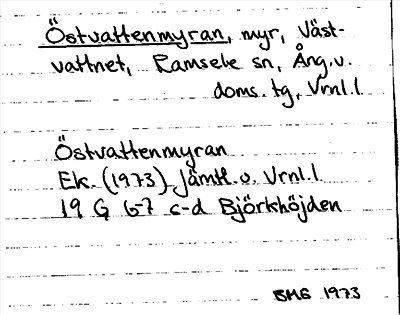 Östvattenmyran, myr, Väst-
vattnet, Ramsele sn, Ång.v.
doms. tg, Vrnl.l
Östvattenmyran
Ek. (1973) Jämtl.o. Vrnl.l.
19 G 6-7 c-d Björkhöjden
BMG 1973